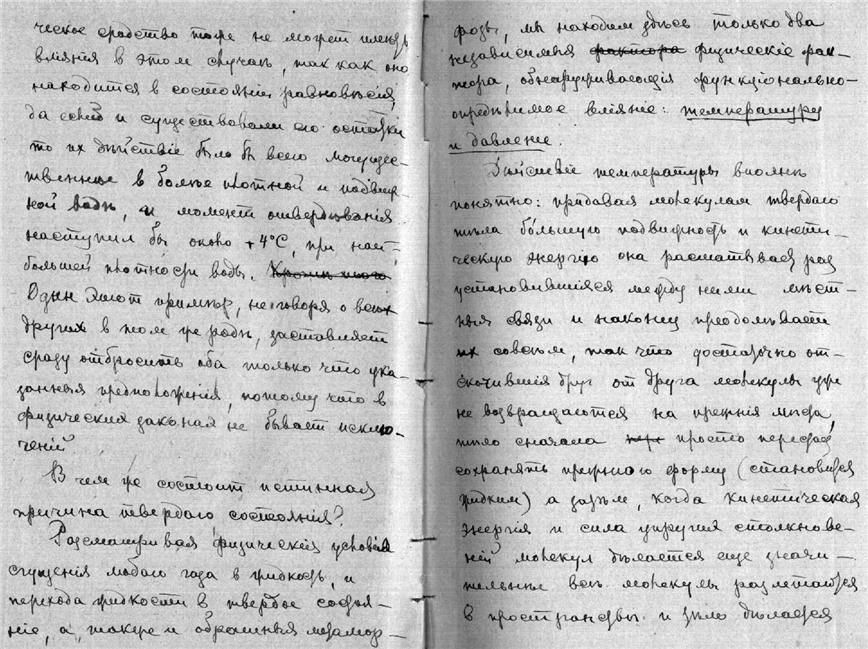 ческое сродство тоже не может иметь
влiянiя в этом случаѣ, так как оно
находится в состоянiи равновѣсiя,
да если б и существовали его остатки
то их дѣйствiе было бы всего могуще-
ственнѣе в болѣе плотной и подвиж-
ной водѣ, и момент отвердѣванiя
наступил бы около +4°C, при наи-
большей плотности воды. Кромѣ того
Один этот примѣр, не говоря о всѣх
других в том же родѣ, заставляет
сразу отбросить оба только что ука-
занныя предположенiя, потому что в
физических законах не бывает исклю-
ченiй.
В чем же состоит истинная
причина твердаго состоянiя?
Разсматривая физическiя условiя
сгущенiя любого газа в жидкость, и
перехода жидкости в твердое состоя-
нiе, а, также и обратныя метамор-
фозы, мы находим здѣсь только два
независимыя фактора физическiе фак-
тора, обнаруживающiя функцiонально-
опредѣлимое влiянiе: температуру
и давленiе.
Дѣйствiе температуры вполнѣ
понятно: придавая молекулам твердаго
тѣла бóльшую подвижность и кинети-
ческую энергiю она расшатывает раз
установившiяся между ними мѣст-
ныя связи и наконец преодолѣвает
их совсѣм, так что достаточно от-
скочившiя друг от друга молекулы уже
не возвращаются на прежнiя мѣста,
тѣло сначала просто перестает
сохранять прежнюю форму (становится
жидким) а затѣм, когда кинетическая
энергiя и сила упругих столкнове-
нiй молекул дѣлается еще значи-
тельнѣе всѣ молекулы разлетаются
в пространствѣ и тѣло дѣлается